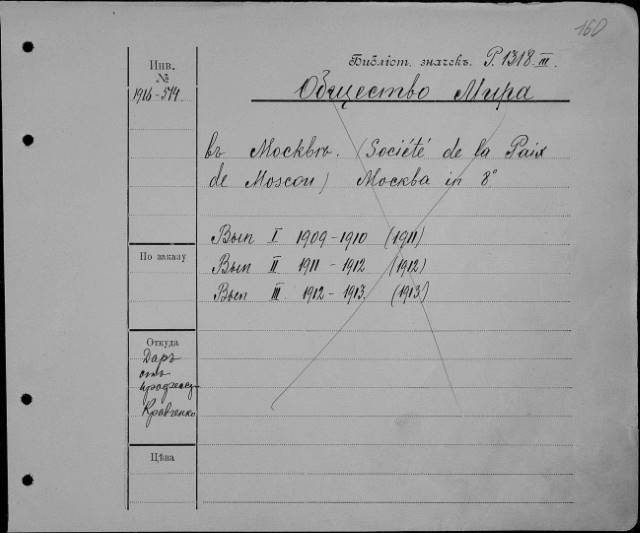 160
Библіот. значекъ. P. 1318. III.
Инв.
№
1916-574
Общество Мира
въ Москвѣ. (Société de la Paix
de Moscou) Москва in 8°
Вып I 1909-1910 (1911)
По заказу
Вып II 1911-1912 (1912)
Вып III. 1912-1913. (1913)
Откуда
Даръ
отъ
Кравченко
Цѣна